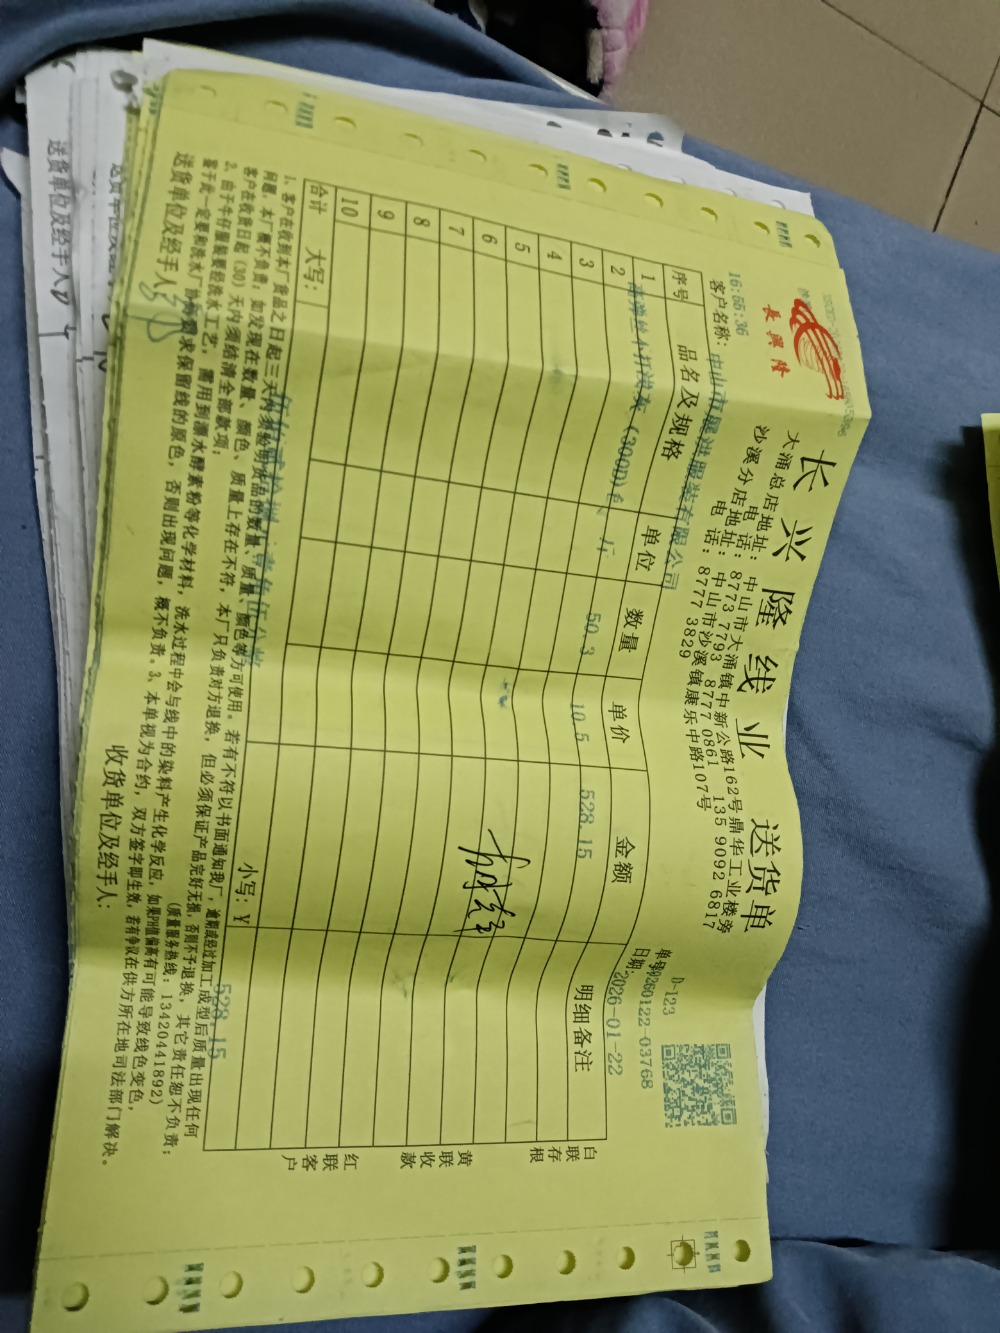 長興隆
长兴隆线业 送货单
大涌总店地址：中山市大涌镇中新公路162号鼎华工业楼旁
电 话：8773 7793 8777 0861 135 9092 6817
沙溪分店地址：中山市沙溪镇康乐中路107号
电 话：8777 3829
D-123
16:55:36
客户名称：中山市 服装有限公司
单号 20260122-03768
日期：2026-01-22
序号 品名及规格 单位 数量 单价 金额 明细备注
1 (300D) 斤 50.3 10.5 528.15
2
3
4
5
6
7
8
9
10
合计 大写： 小写：￥ 528.15
白联存根
黄联收款
红联客户
1、客户在收到本厂货品之日起三天内须验明货品的数量、质量、颜色等方可使用。若有不符以书面通知我厂，逾期或经过加工成型后质量出现任何
问题，本厂概不负责；如发现在数量、颜色、质量上存在不符，本厂只负责对方退换，但必须保证产品完好无损，否则不予退换，其它责任恕不负责；
客户在收货日起（30）天内须结清全部款项；
(质量服务热线：13420441892)
2、由于牛仔服装要经洗水工艺，需用到漂水酵素粉等化学材料，洗水过程中会与线中的染料产生化学反应，如果PH值偏高有可能导致线色变色，
鉴于此一定要和洗水厂 求保留线的原色，否则出现问题，概不负责。3、本单视为合约，双方签字即生效，若有争议在供方所在地司法部门解决。
送货单位及经手人： 收货单位及经手人：
送货单位及经手人
送货单位及经手人